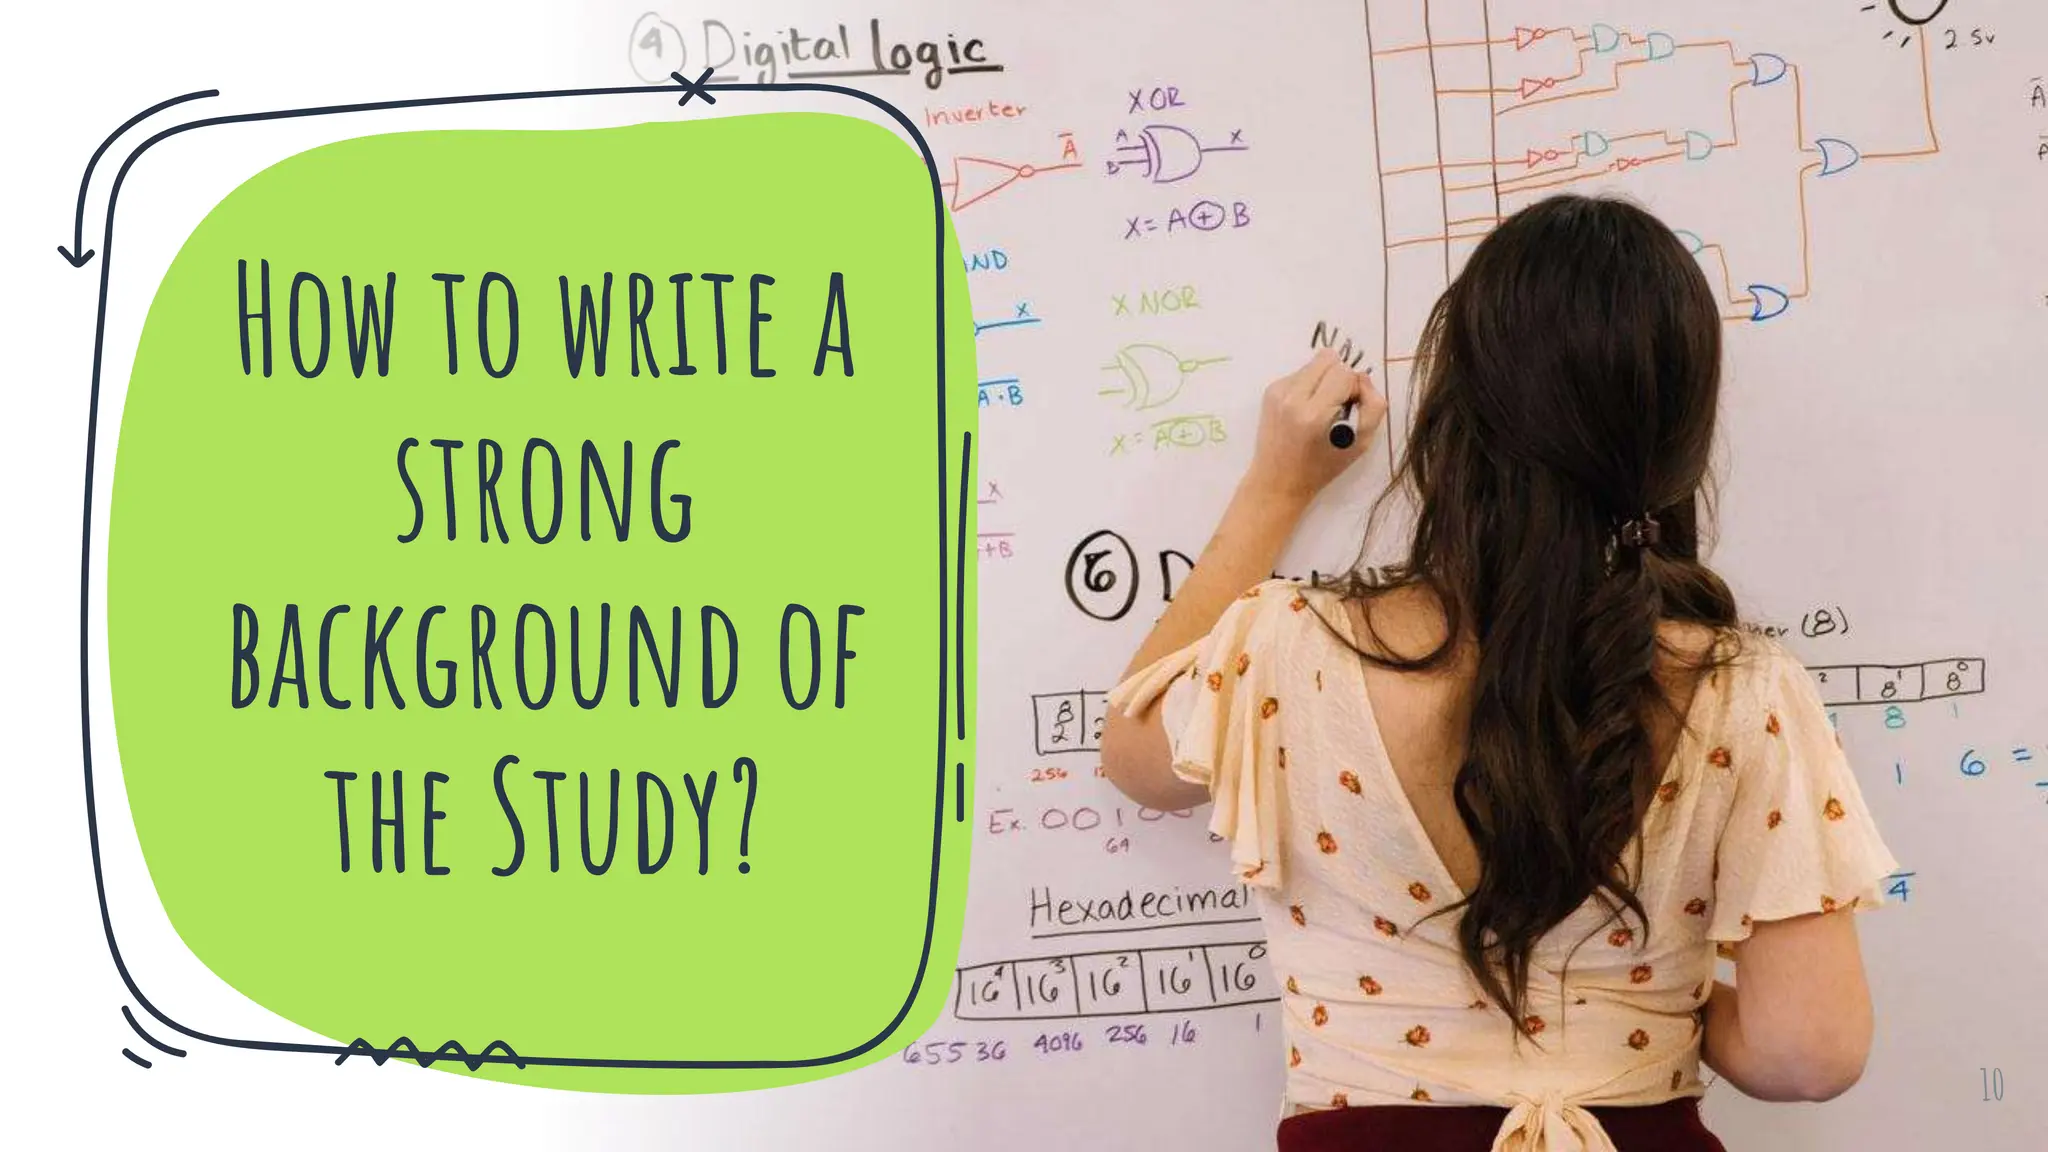 How to write a
strong
background of
the Study?
4 Digital logic
Inverter
Ā
XOR
A
B
X
X = A ⊕ B
X NOR
X
A · B
X = A ⊕ B
X
+B
2.5v
5
(8)
8 8
2
256
8¹ 8⁰
8 1
1 6 =
Ex. 00100
64
4
Hexadecimal
16⁴ 16³ 16² 16¹ 16⁰
65536 4096 256 16 1
10